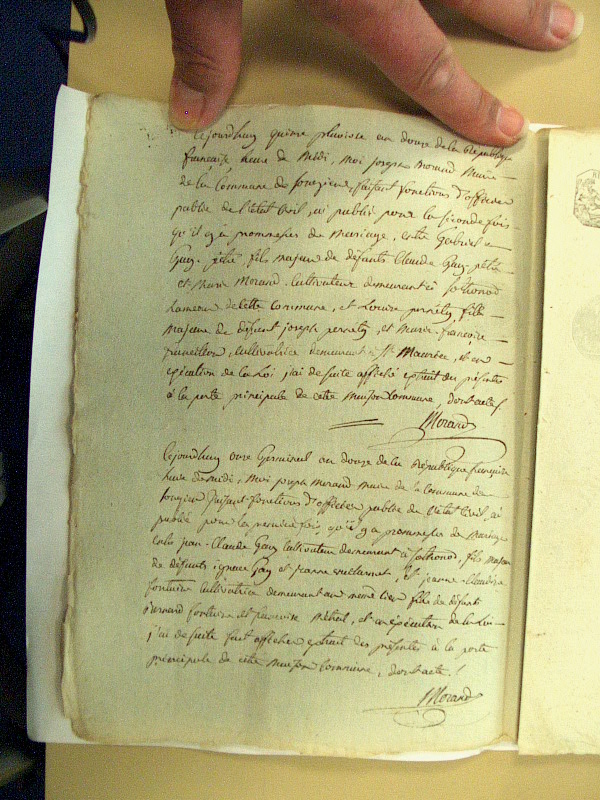 Cejourdhuy quinze pluviose an douze de la Republique
francaise heure de Midi, Moi joseph Morand Maire
de la Commune de songieu, faisant fonctions d'officier
public de l'état Civil, ai publié pour la seconde fois
qu'il y a promesses de Mariage, entre Gabriel
Gay fils majeur de défunts Claude Gay
et Marie Morand Cultivateur demeurant à Sothonod
hameau de cette Commune, et Louise pernety, fille
majeure de défunt joseph pernety, et Marie-françoise
Cultivatrice demeurant à St. Maurice, et en
exécution de la Loi j'ai de suite affiché extrait des présentes
à la porte principale de cette Maison Commune, dont acte.
Morand
Cejourdhuy onze Germinal an douze de la République française
heure de midi, Moi joseph morand maire de la Commune de
songieu faisant fonctions d'officier public de l'état Civil, ai
publié pour la première fois, qu'il y a promesses de Mariage
entre jean-Claude Gay Cultivateur demeurant à Sothonod, fils majeur
de défunts ignace Gay et jeanne et jeanne-Claudine
fontaine Cultivatrice demeurant au même lieu fille de défunt
fontaine et et en exécution de la Loi
j'ai de suite fait afficher extrait des présentes à la porte
principale de cette Maison Commune, dont acte !
Morand